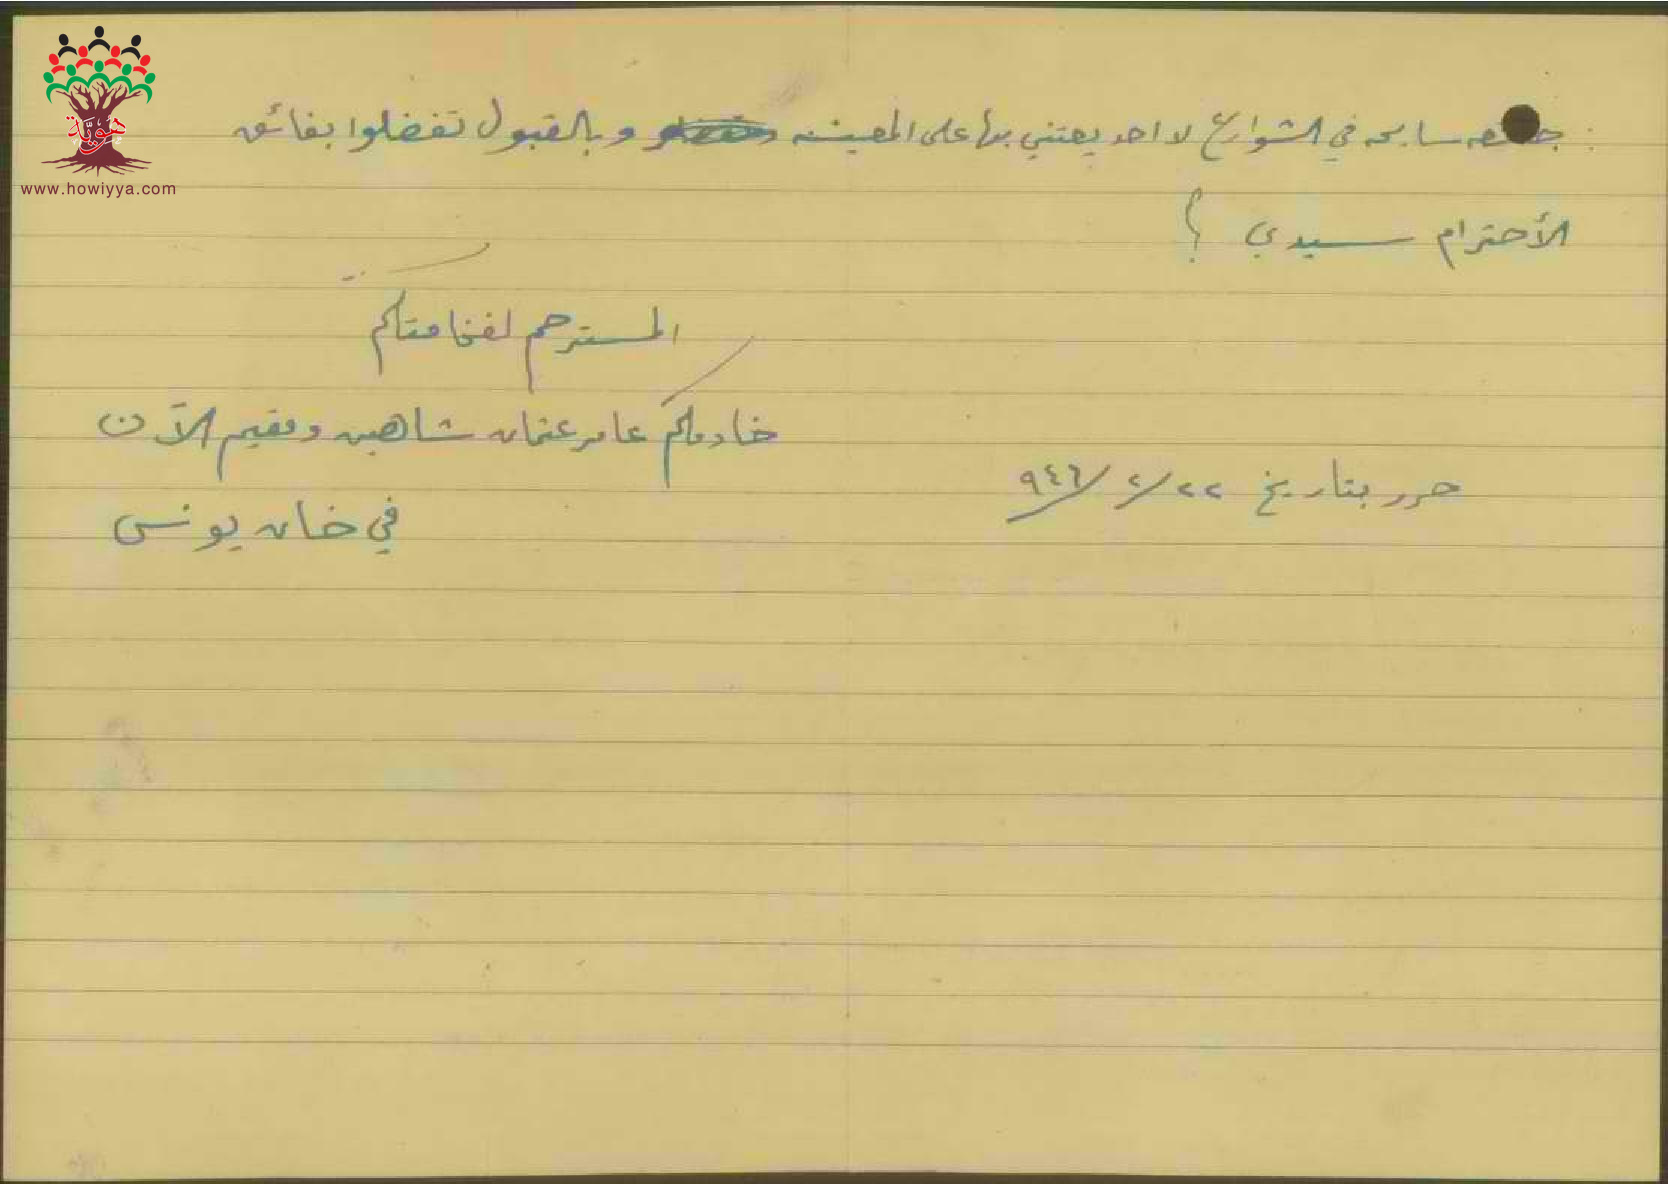 هويّة
www.howiyya.com
سابحه في الشوارع لا احد يعتني بها على المعيشه وبالقبول تفضلوا بفائق
الأحترام سيدي ؟
المسترحم لفخامتكم
خادمكم عامر عثمان شاهين ومقيم الآن
في خان يونس
حرر بتاريخ ٢٢/٢/٩٤٦